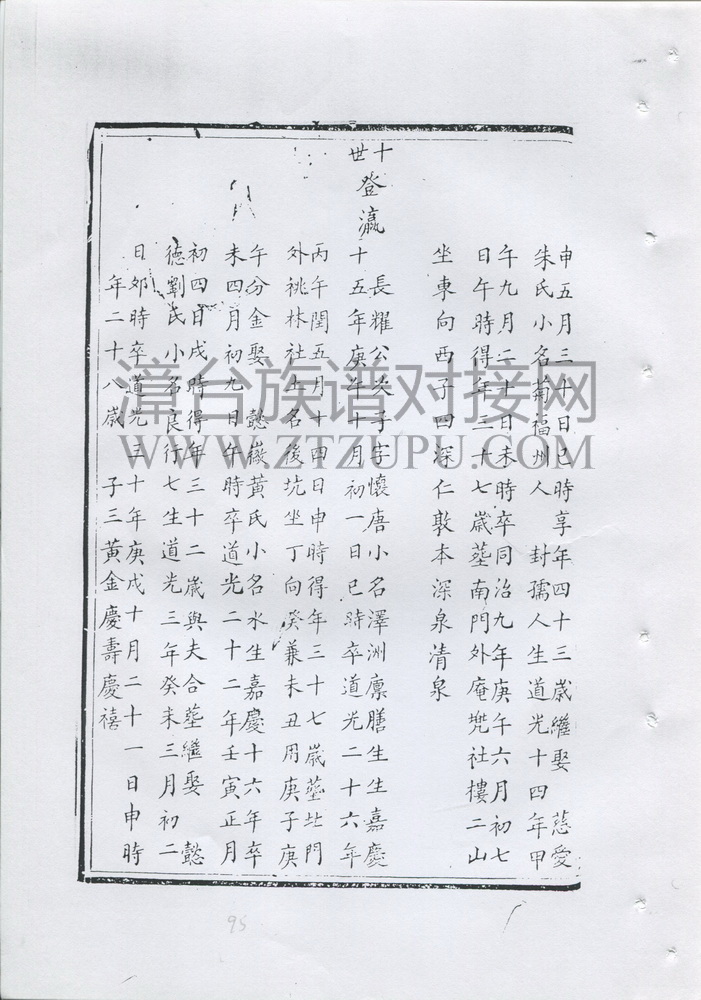 申五月三十日巳時享年四十三歲繼娶 慈愛
朱氏小名菊福州人 封孺人生道光十四年甲
午九月二十日未時卒同治九年庚午六月初七
日午時得年三十七歲塟南門外庵兠社樓二山
坐東向西子四深仁敦本深泉清泉
十世
登瀛
長耀公次子字懷唐小名澤洲廪膳生生嘉慶
十五年庚午十月初一日巳時卒道光二十六年
丙午閏五月十四日申時得年三十七歲塟北門
外桃林社土名後坑坐丁向癸兼未丑用庚子庚
午分金娶 懿嶶黃氏小名水生嘉慶十六年辛
未四月初九日午時卒道光二十二年壬寅正月
初四日戌時得年三十二歲與夫合塟繼娶 懿
德劉氏小名良行七生道光三年癸未三月初二
日夘時卒道光三十年庚戌十月二十一日申時
年二十八歲 子三黃金慶壽慶禧
漳台族谱对接网
WWW.ZTZUPU.COM
95